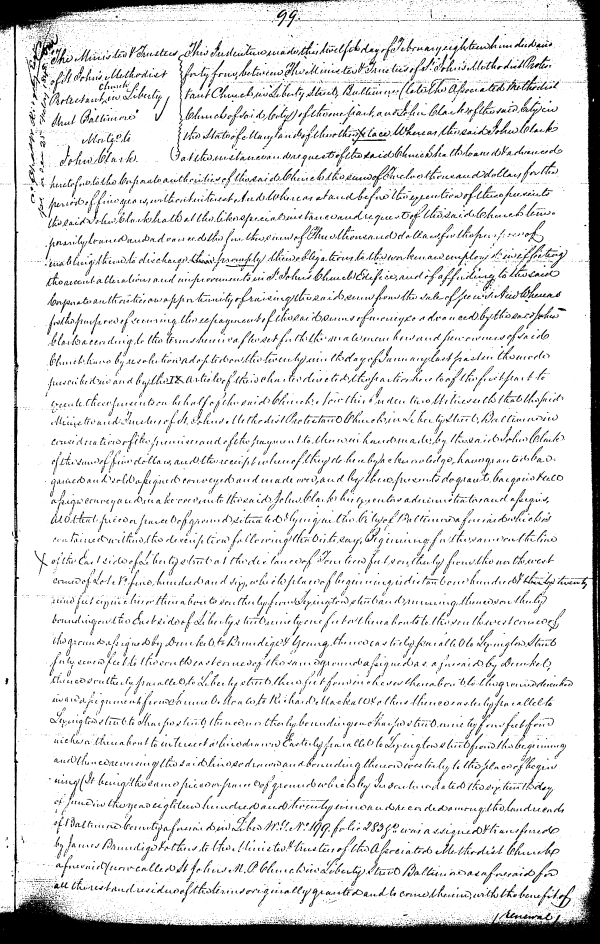 99.
The Minister & Trustees
of St John's Methodist
Protestant Church, in Liberty
Street Baltimore
Mortge to
John Clark.
This Indenture made, this twelfth day of February eighteen hundred and
forty four, between The Minister & Trustees of St. John's Methodist Protes
tant Church, in Liberty Street, Baltimore (late The Associated Methodist
Church of said City) of the one part, and John Clark of the said City in
the State of Maryland of the other place. Whereas, the said John Clark
at the instance and request of the said Church hath loaned & advanced
heretofore to the Corporate authorities of the said Church the sum of Twelve thousand dollars for the
period of five years, without interest. And Whereas at and before the execution of these presents
the said John Clark hath at the like special instance and request of the said Church tem
porarily loaned and advanced the further sum of Three thousand dollars for the purposes of
enabling them to discharge promptly their obligations to the workmen employed in effecting
the recent alterations and improvements in St. John's Church Edifice, and of affording to the said
Corporate authorities an opportunity of raising the said sum from the sale of pews &c. And Whereas
for the purpose of securing the repayment of the said sums of money so advanced by the said John
Clark according to the terms hereinafter set forth the male members and pew owners of said
Church have by resolution adopted on the twenty sixth day of January last past in the mode
prescribed in and by the IX article of their charter directed the parties hereto of the first part to
execute these presents on behalf of the said Church. Now this Indenture Witnesseth that the said
Minister and Trustees of St. Johns Methodist Protestant Church, in Liberty Street, Baltimore in
consideration of the premises and of the payment to them in hand made, by the said John Clark
of the sum of five dollars, and the receipt whereof they do hereby acknowledge, have granted bar
gained and sold assigned conveyed and made over, and by these presents do grant, bargain & sell
assign convey and make over, unto the said John Clark his executors administrators and assigns,
All that piece or parcel of ground situated & lying in the City of Baltimore aforesaid which is
contained within the description following that is to say, Beginning for the same on the line
X of the East side of Liberty street at the distance of Fourteen feet southerly from the north west
corner of Lot No five hundred and six, which place of beginning is distant one hundred & twenty
nine feet six inches or thereabout to southerly from Lexington street and running thence southerly
bounding on the East side of Liberty street ninety one feet or thereabouts to the south west corner of
the ground assigned by Dunkel to Brundige & Young, thence easterly parallel to Lexington Street
forty seven feet to the south east corner of the same ground assigned as aforesaid by Dunkel,
thence southerly parallel to Liberty street three feet four inches or thereabouts to the ground described
in an assignment from to Richard Mackall & others thence easterly parallel to
Lexington street to Sharp street, thence northerly bounding on Sharp street ninety four feet four
inches or thereabout to intersect a line drawn Easterly parallel to Lexington street from the beginning
and thence reversing the said line so drawn and bounding thereon westerly to the place of begin
ning (It being the same piece or parcel of ground which by Indenture dated the sixteenth day
of June in the year eighteen hundred and twenty nine and recorded among the land records
of Baltimore County aforesaid in Liber W.G. No 199, folio 283 &c was assigned & transferred
by James Brundige & others to the Minister & trustees of the Associated Methodist Church
aforesaid (now called St Johns M. P. Church in Liberty Street Baltimore as aforesaid for
all the rest and residue of the terms originally granted and to come therein, with the benefit of
(renewal)